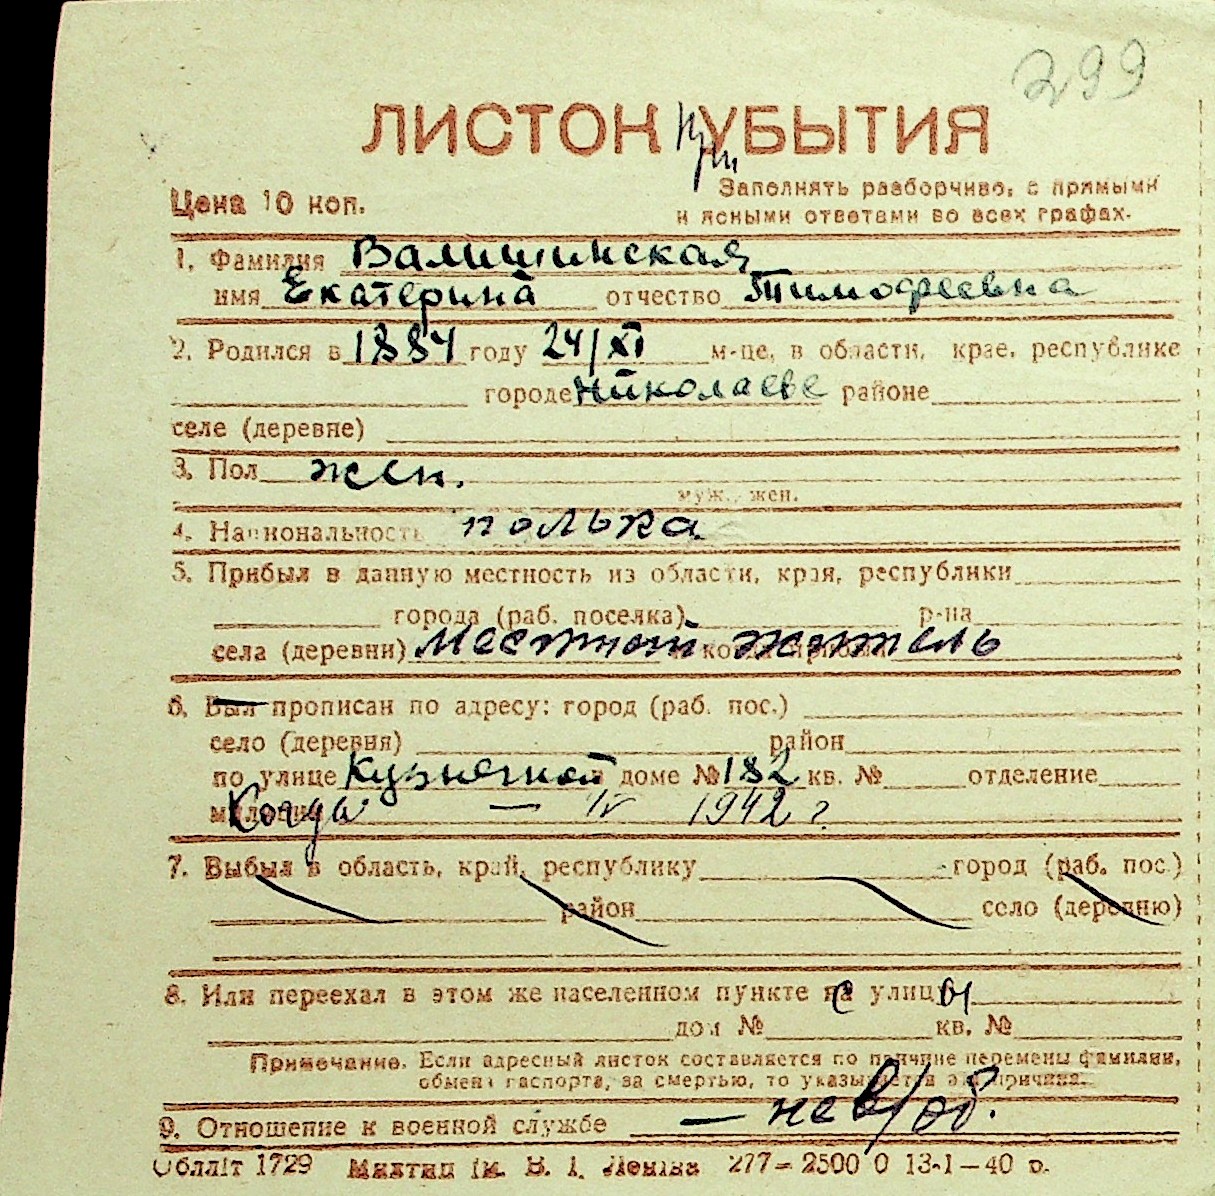 299
ЛИСТОК при УБЫТИЯ
Цена 10 коп.
Заполнять разборчиво, с прямыми
и ясными ответами во всех графах.
1. Фамилия Валишинская
имя Екатерина отчество Тимофеевна
2. Родился в 1884 году 24/XI м-це, в области, крае, республике
городе Николаеве районе
селе (деревне)
3. Пол жен.
муж., жен.
4. Национальность полька
5. Прибыл в данную местность из области, края, республики
города (раб. поселка) р-на
села (деревни) местный житель
6. Был прописан по адресу: город (раб. пос.)
село (деревня) район
по улице Кузнечной доме № 182 кв. № отделение
милиции Когда — IV 1942 г.
7. Выбыл в область, край, республику город (раб. пос.)
район село (деревню)
8. Или переехал в этом же населенном пункте с улицы
дом № кв. №
Примечание. Если адресный листок составляется по причине перемены фамилии,
обмена паспорта, за смертью, то указывается эта причина.
9. Отношение к военной службе — нев/об.
Обlліт 1729 ім. В. І. Леніна 277—2500 0 13-I—40 р.